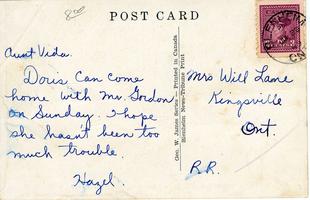 800
POST CARD
Aunt Vida.
Doris can come
home with Mr. Gordon
on Sunday. I hope
she hasn't been too
much trouble.
Hazel.
Geo. W. James Series — Printed in Canada
Blenheim News-Tribune Print
BLENHEIM
ON
3 3
Mrs Will Lane
Kingsville
Ont.
R.R.